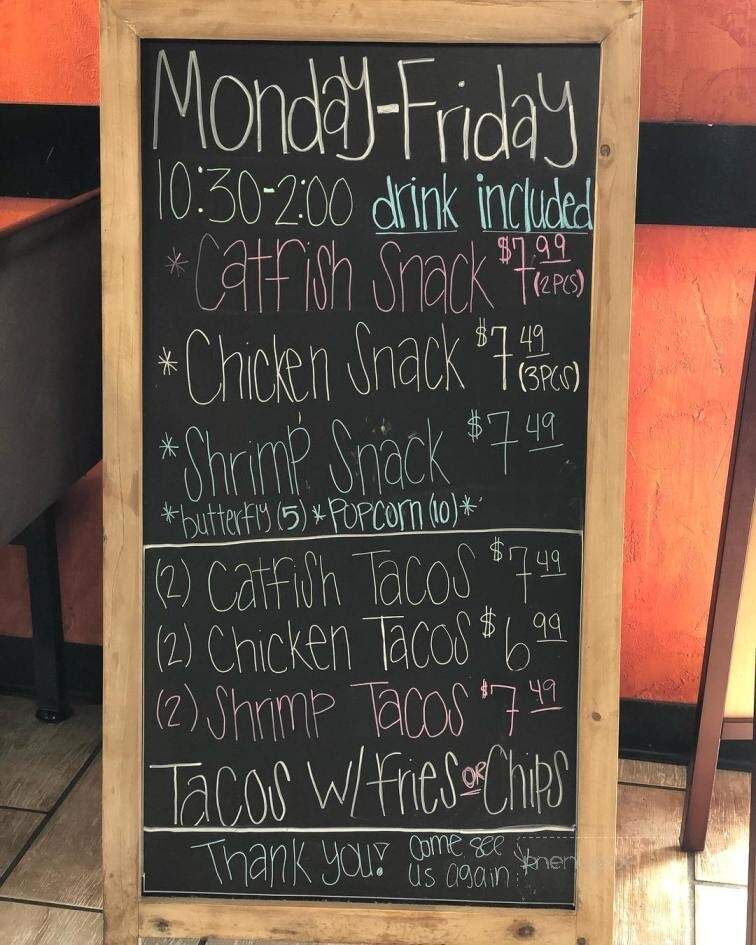 Monday-Friday
10:30-2:00 drink included
* Catfish Snack $7.99 (2PCS)
* Chicken Snack $7.49 (3PCS)
* Shrimp Snack $7.49
*butterfly (5) * Popcorn (10) *
(2) Catfish Tacos $7.49
(2) Chicken Tacos $6.99
(2) Shrimp Tacos $7.49
Tacos w/ fries or Chips
Thank you! come see
us again!